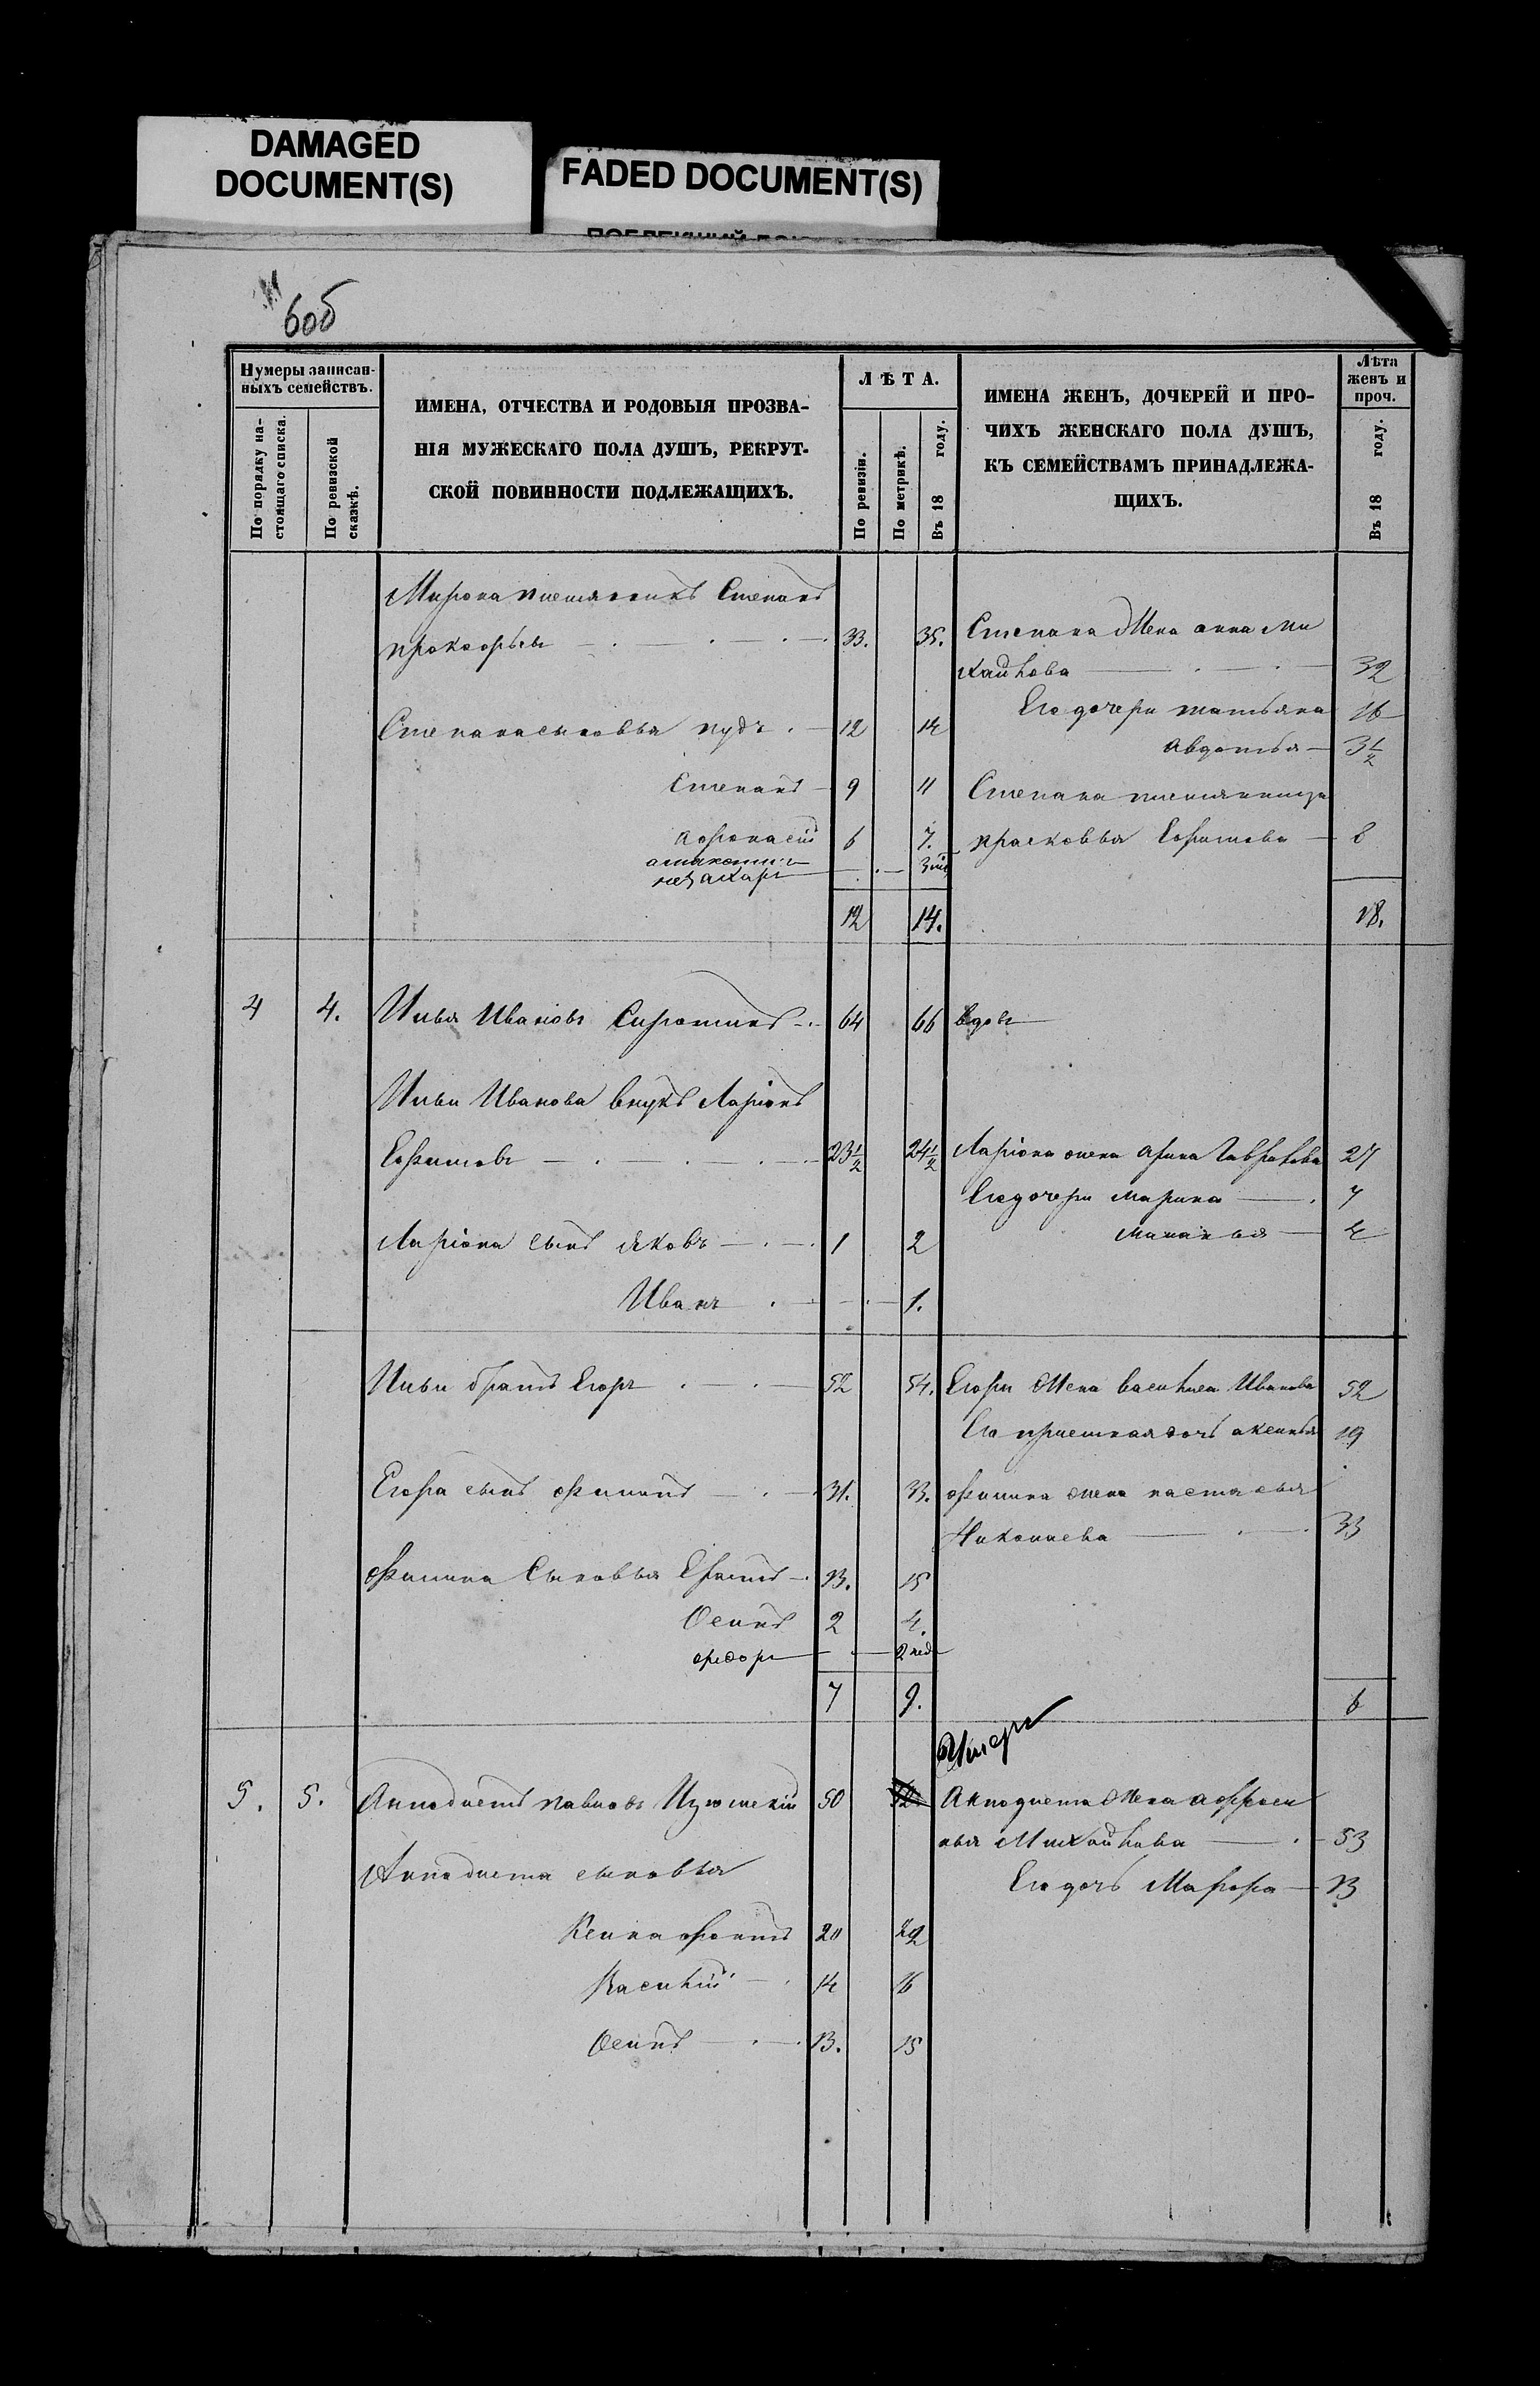 DAMAGED
DOCUMENT(S)
FADED DOCUMENT(S)
6об
Нумеры записан-
ныхъ семействъ.
По порядку на-
стоящаго списка.
По ревизской
сказкѣ.
ИМЕНА, ОТЧЕСТВА И РОДОВЫЯ ПРОЗВА-
НІЯ МУЖЕСКАГО ПОЛА ДУШЪ, РЕКРУТ-
СКОЙ ПОВИННОСТИ ПОДЛЕЖАЩИХЪ.
ЛѢТА.
По ревизіи.
По метрикѣ.
Въ 18 году.
ИМЕНА ЖЕНЪ, ДОЧЕРЕЙ И ПРО-
ЧИХЪ ЖЕНСКАГО ПОЛА ДУШЪ,
КЪ СЕМЕЙСТВАМЪ ПРИНАДЛЕЖА-
ЩИХЪ.
Лѣта
женъ и
проч.
Въ 18 году.
Мирона племянникъ Степанъ
прокофьевъ 33. 35. Степана Жена анна Ми
хайлова 32
Степана сыновья 12 14 Его дочери татьяна 16
авдотья 3 1/2
Степанъ 9 11 Степана племянница
Афонасій 6 7. прасковья Ефимова 8
захаръ
12 14. 18.
4 4. Илья Ивановъ Сиротинъ 64 66 вдовъ
Ильи Иванова внукъ Ларіонъ
Ефимовъ 23 1/2 24 1/2 Ларіона жена Арина Гаврилова 27
Его дочери Марина 7
Ларіона сынъ яковъ 1 2 Маланья 4
Иванъ 1.
Ильи братъ Егоръ 52 54. Егора Жена василиса Иванова 52
Его приемная дочь аксинья 19
Егора сынъ филипъ 31. 33. филипа жена настасья
Николаева 33
филипа Сыновья 13. 15
Осипъ 2 4.
федоръ 2 нед
7 9. 6
умеръ
5. 5. Анподистъ павловъ Изюмскій 50 52 Анподиста Жена афроси
нья Михайлова 53
Анподиста сыновья Его дочь Марфа 13
Ксинофонтъ 20 22
Василій 14 16
Осипъ 13. 15